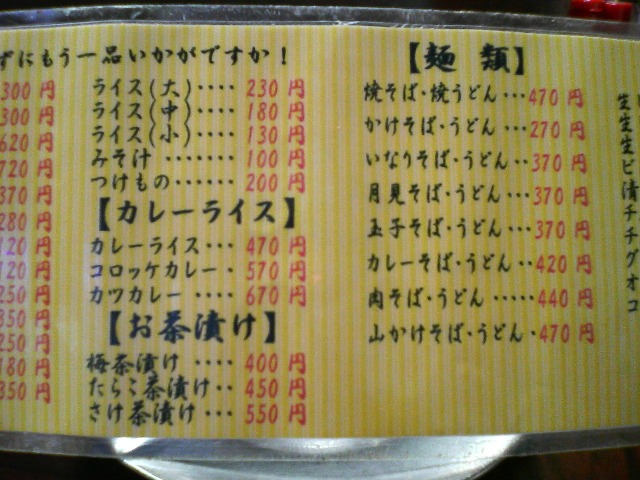 ずにもう一品いかがですか！
300 円
300 円
620 円
720 円
370 円
280 円
120 円
120 円
250 円
350 円
250 円
180 円
350 円
ライス(大)････ 230 円
ライス(中)････ 180 円
ライス(小)････ 130 円
みそ汁 ･･･････ 100 円
つけもの･････ 200 円
【カレーライス】
カレーライス･･･ 470 円
コロッケカレー･ 570 円
カツカレー ････ 670 円
【お茶漬け】
梅茶漬け ････ 400 円
たらこ茶漬け･･ 450 円
さけ茶漬け ･･･ 550 円
【麺 類】
焼そば･焼うどん ･･･470 円
かけそば･うどん ･･･270 円
いなりそば･うどん ･･370 円
月見そば･うどん ･･･370 円
玉子そば･うどん ･･･370 円
カレーそば･うどん ･･420 円
肉そば･うどん ･････440 円
山かけそば･うどん ･470 円
生ビ
生漬
生チ
チ
グ
オ
コ